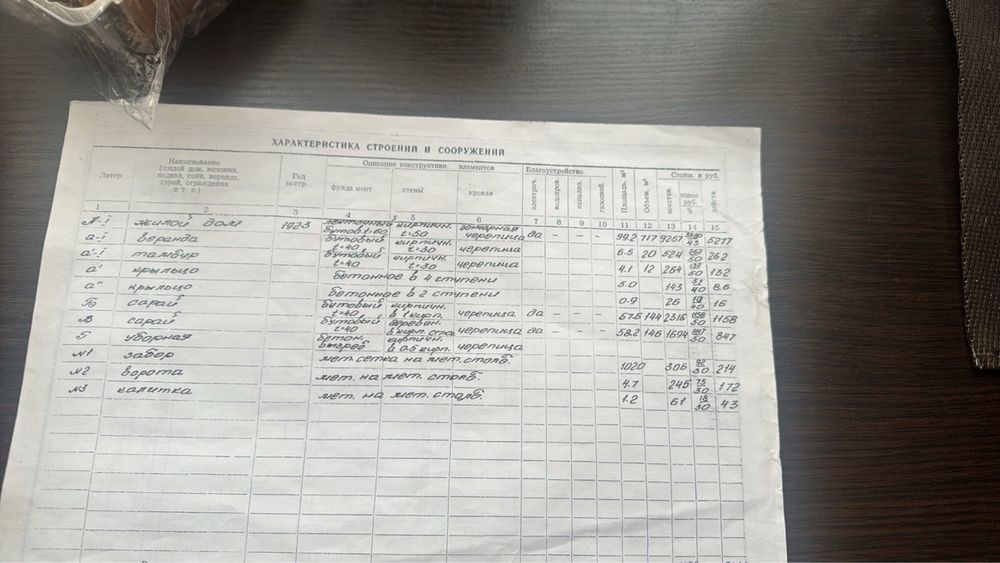 ХАРАКТЕРИСТИКА СТРОЕНИЙ И СООРУЖЕНИЙ
Литер Наименование (жилой дом, мезонин, подвал, сени, веранда, сарай, ограждения и т. п.) Год постр. Описание конструктивн. элементов Благоустройство Площадь, м² Объем, м³ Стоим. в руб.
фундамент стены кровли электрич. водопров. канализ. газоснаб. восстан. износ руб. % действ.
1 2 3 4 5 6 7 8 9 10 11 12 13 14 15
А-I жилой дом 1925 ленточный бутов. t=60 кирпичн. t=50 черепица да – – – 99.2 717 9257 43 5277
а-I веранда бутовый t=40 кирпичн. t=30 черепица 6.6 20 524 50 262
а'-I тамбур бутовый t=40 кирпичн. t=30 черепица 4.1 12 264 132/50 132
а' крыльцо бетонное в 4 ступени 5.0 143 57/40 86
а" крыльцо бетонное в 2 ступени 0.9 26 10/40 16
Б сарай бутовый t=40 кирпичн. в 1 кирп. черепица да – – – 57.6 144 2316 1158/50 1158
В сарай бутовый t=40 деревян. черепица да – – – 58.2 146 1694 847/50 847
Г уборная бетон. выгреб кирпичн. в 0.5 кирп. черепица
№1 забор мет. сетка на мет. столб. 1020 306 92/30 214
№2 ворота мет. на мет. столб. 4.7 245 73/30 172
№3 калитка мет. на мет. столб. 1.2 61 18/30 43